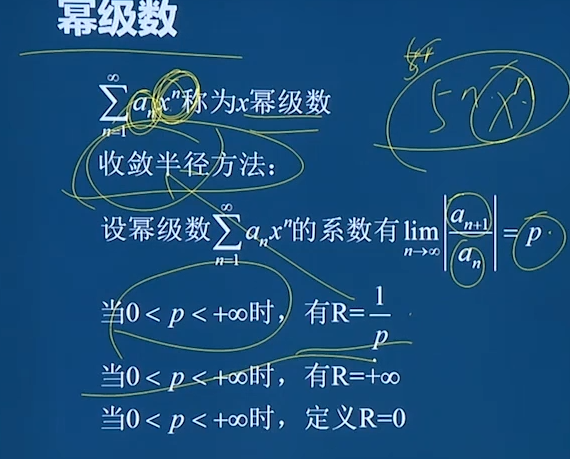 幂级数
5n xⁿ
∑_{n=1}^{∞} aₙxⁿ称为x幂级数
收敛半径方法：
设幂级数∑_{n=1}^{∞} aₙxⁿ的系数有lim_{n→∞} |aₙ₊₁/aₙ| = p
当0 < p < +∞时，有R=1/p
当0 < p < +∞时，有R=+∞
当0 < p < +∞时，定义R=0